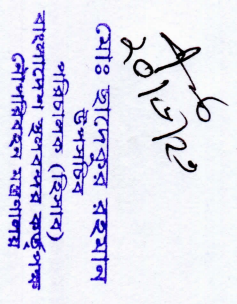 ২০/১১/২২
মোঃ ছাদেকুর রহমান
উপসচিব
পরিচালক (হিসাব)
বাংলাদেশ স্থলবন্দর কর্তৃপক্ষ
নৌপরিবহন মন্ত্রণালয়